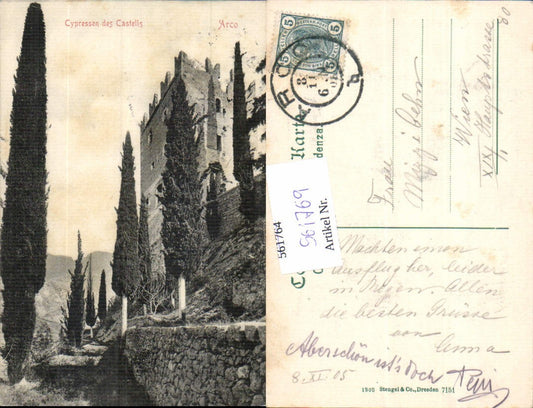 Cypressen des Castells
Arco
5
5
ARCO
8
11
6
b
Karte
561764
561769
Artikel Nr.
Frau
Mizzi
Wien
XIX Hauptstrasse
Machten einen
Ausflug her, leider
in Regen. Allen
die besten Grüsse
von
Anna
Aber schön ist's doch
8. XI. 05
1905 Stengel & Co., Dresden 7151